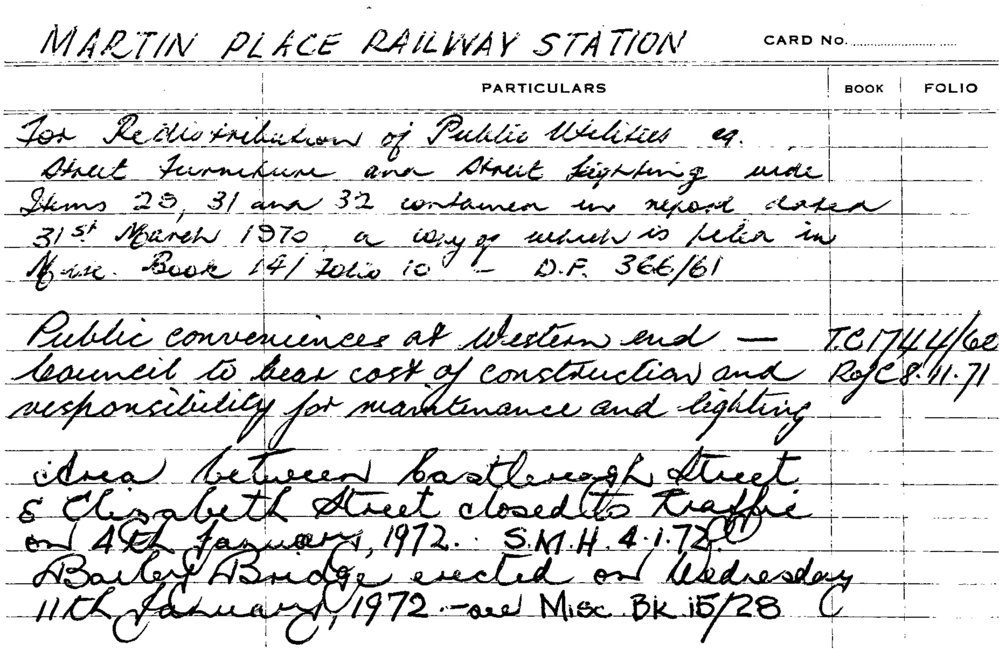 MARTIN PLACE RAILWAY STATION CARD No.
PARTICULARS BOOK FOLIO
For Redistribution of Public Utilities eg.
Street Furniture and Street Lighting vide
Items 23, 31 and 32 contained in report dated
31st March 1970 a copy of which is filed in
Misc. Book 14/ Folio 10 - D.F. 366/61
Public conveniences at Western end — T.C 1744/62
Council to bear cost of construction and R of C 8.11.71
responsibility for maintenance and lighting
Area between Castlereagh Street
& Elizabeth Street closed to traffic
on 4th January, 1972. S.M.H. 4.1.72.
Bailey Bridge erected on Wednesday
11th January, 1972 - see Misc Bk 15/28